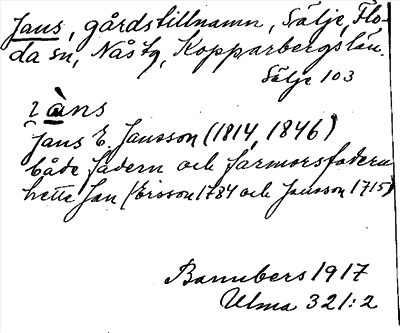 Jans, gårdstillnamn, Sälje, Flo-
da sn, Nås tg, Kopparbergs län.
Sälje 103
2 àns
Jans E. Jansson (1814, 1846)
både fadern och farmorsfadern
hette Jan (Ersson 1784 och Jansson 1715)
1917
Ulma 321:2